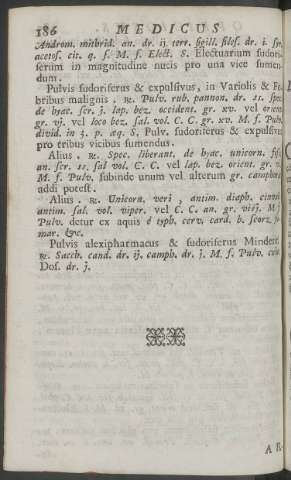 186 MEDICUS
Androm. mithrid. an. dr. ij. terr. sigill. silos. dr. i. syr.
acetos. cit. q. s. M. f. Elect. S. Electuarium sudori-
ferum in magnitudine nucis pro una vice sumen-
dum.
Pulvis sudoriferus & expulsivus, in Variolis & Fe-
bribus malignis. ℞. Pulv. rub. pannon. dr. ii. spec.
de hyac. scr. j. lap. bez. occident. gr. xv. vel orient.
gr. vj. vel loco bez. sal. vol. C. C. gr. xv. M. f. Pulv.
divid. in 3. p. æq. S. Pulv. sudoriferus & expulsivus
pro tribus vicibus sumendus.
Alius. ℞. Spec. liberant. de hyac. unicorn.
an. scr. ii. sal vol. C. C. vel lap. bez. orient. gr.
M. f. Pulv. subinde unum vel alterum gr. camphoræ
addi potest.
Alius. ℞. Unicorn. veri, antim. diaph. cinnab.
antim. sal. vol. viper. vel C. C. an. gr. viij. M. f.
Pulv. detur ex aquis è toph. cerv. card. b. scorz.
mar. &c.
Pulvis alexipharmacus & sudoriferus Minderer.
℞. Sacch. cand. dr. ij. camph. dr. j. M. f. Pulv.
Dos. dr. j.